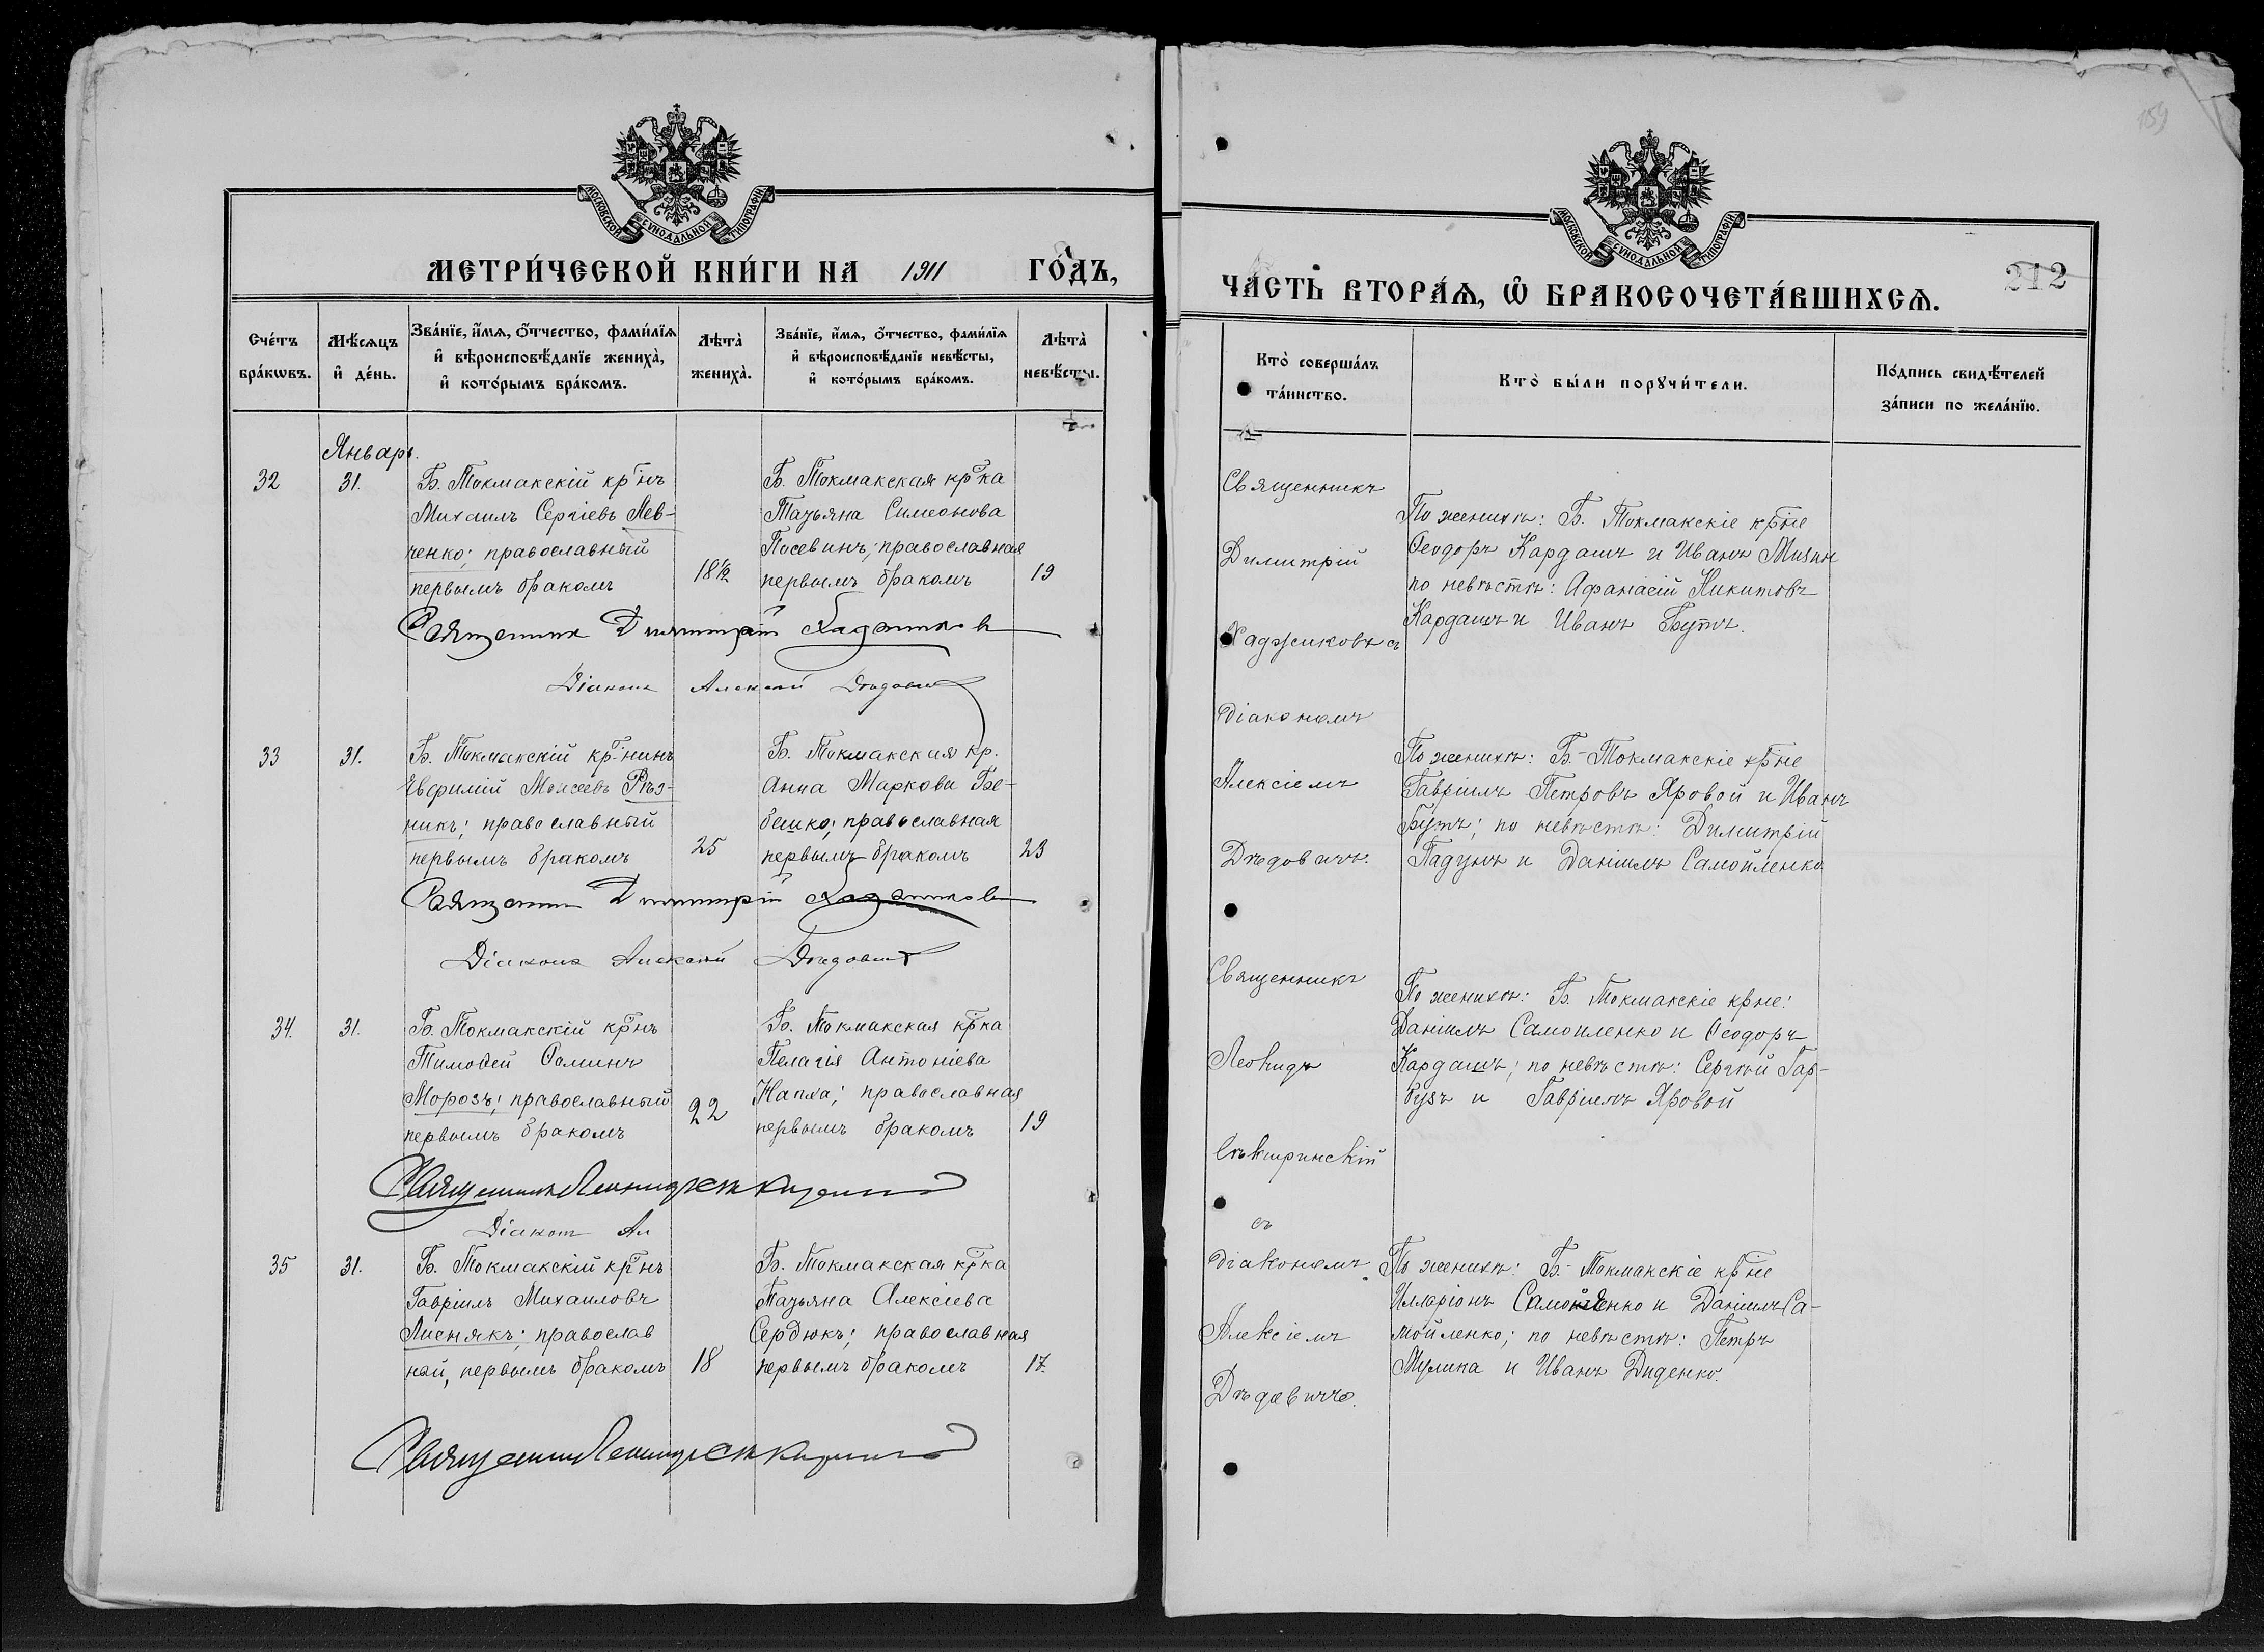 МОСКОВСКОЙ СѴНОДАЛЬНОЙ ТИПОГРАФІИ
МЕТРИ́ЧЕСКОЙ КНИ́ГИ НА 1911 ГО́ДЪ,
Сче́тъ бра́кѡвъ.
Мѣ́сяцъ и҆ де́нь.
Зва́нїе, и҆́мѧ, ѻ҆́тчество, фами́лїѧ
и҆ вѣроисповѣ́данїе жениха̀,
и҆ кото́рымъ бра́комъ.
Лѣта̀ жениха̀.
Зва́нїе, и҆́мѧ, ѻ҆́тчество, фами́лїѧ
и҆ вѣроисповѣ́данїе невѣ́сты,
и҆ кото́рымъ бра́комъ.
Лѣта̀ невѣ́сты.
Январь.
32
31.
Б. Токмакскій кр-інъ
Михаилъ Сергіевъ Лев-
ченко; православный
первымъ бракомъ
18½
Б. Токмакская кр-ка
Татьяна Симеонова
Посевинъ; православная
первымъ бракомъ
19
Священник Димитрій Хаджиков
Діаконъ Алексій Дѣдович
33
31.
Б. Токмакскій кр-нинъ
Евфимій Моисеевъ Рѣз-
никъ; православный
первымъ бракомъ
25
Б. Токмакская кр.
Анна Маркова Бе-
бешко; православная
первымъ бракомъ
23
Священник Димитрій Хаджиков
Діаконъ Алексій Дѣдович
34.
31.
Б. Токмакскій кр-нъ
Тимоѳей Ѳоминъ
Морозъ; православный
первымъ бракомъ
22
Б. Токмакская кр-ка
Пелагія Антоніева
Капха; православная
первымъ бракомъ
19
Священник Леонид
Діакон Ал
35
31.
Б. Токмакскій кр-нъ
Гавріилъ Михаиловъ
Лиснякъ; православ
ный, первымъ бракомъ
18
Б. Токмакская кр-ка
Татьяна Алексіева
Сердюкъ; православная
первымъ бракомъ
17.
Священник Леонид
159
МОСКОВСКОЙ СѴНОДАЛЬНОЙ ТИПОГРАФІИ
ЧА́СТЬ ВТОРА́Ѧ, Ѡ҆ БРАКОСОЧЕТА́ВШИХСѦ.
212
Кто̀ соверша́лъ та́инство.
Кто̀ бы́ли порꙋчи́тели.
По́дпись свидѣ́телей
за́писи по жела́нїю.
Священникъ
Димитрій
Хаджиковъ съ
Діакономъ
Алексіемъ
Дѣдовичъ.
По женихѣ: Б. Токмакскіе кр-не
Ѳеодоръ Кардашъ и Иванъ Мизин
по невѣстѣ: Аѳанасій Никитовъ
Кардашъ и Иванъ Бутъ.
По женихѣ: Б-Токмакскіе кр-не
Гавріилъ Петровъ Яровой и Иванъ
Бутъ; по невѣстѣ: Димитрій
Падунъ и Даніилъ Самойленко
Священникъ
Леонидъ
съ
Діакономъ
Алексіемъ
Дѣдовичъ.
По женихѣ: Б. Токмакскіе крне:
Даніилъ Самойленко и Ѳеодоръ
Кардашъ; по невѣстѣ: Сергѣй Гар-
бузъ и Гавріилъ Яровой
По женихѣ: Б.-Токмакскіе кр-не
Илларіонъ Самойленко и Даніилъ Са-
мойленко; по невѣстѣ: Петръ
Мулика и Иванъ Диденко.